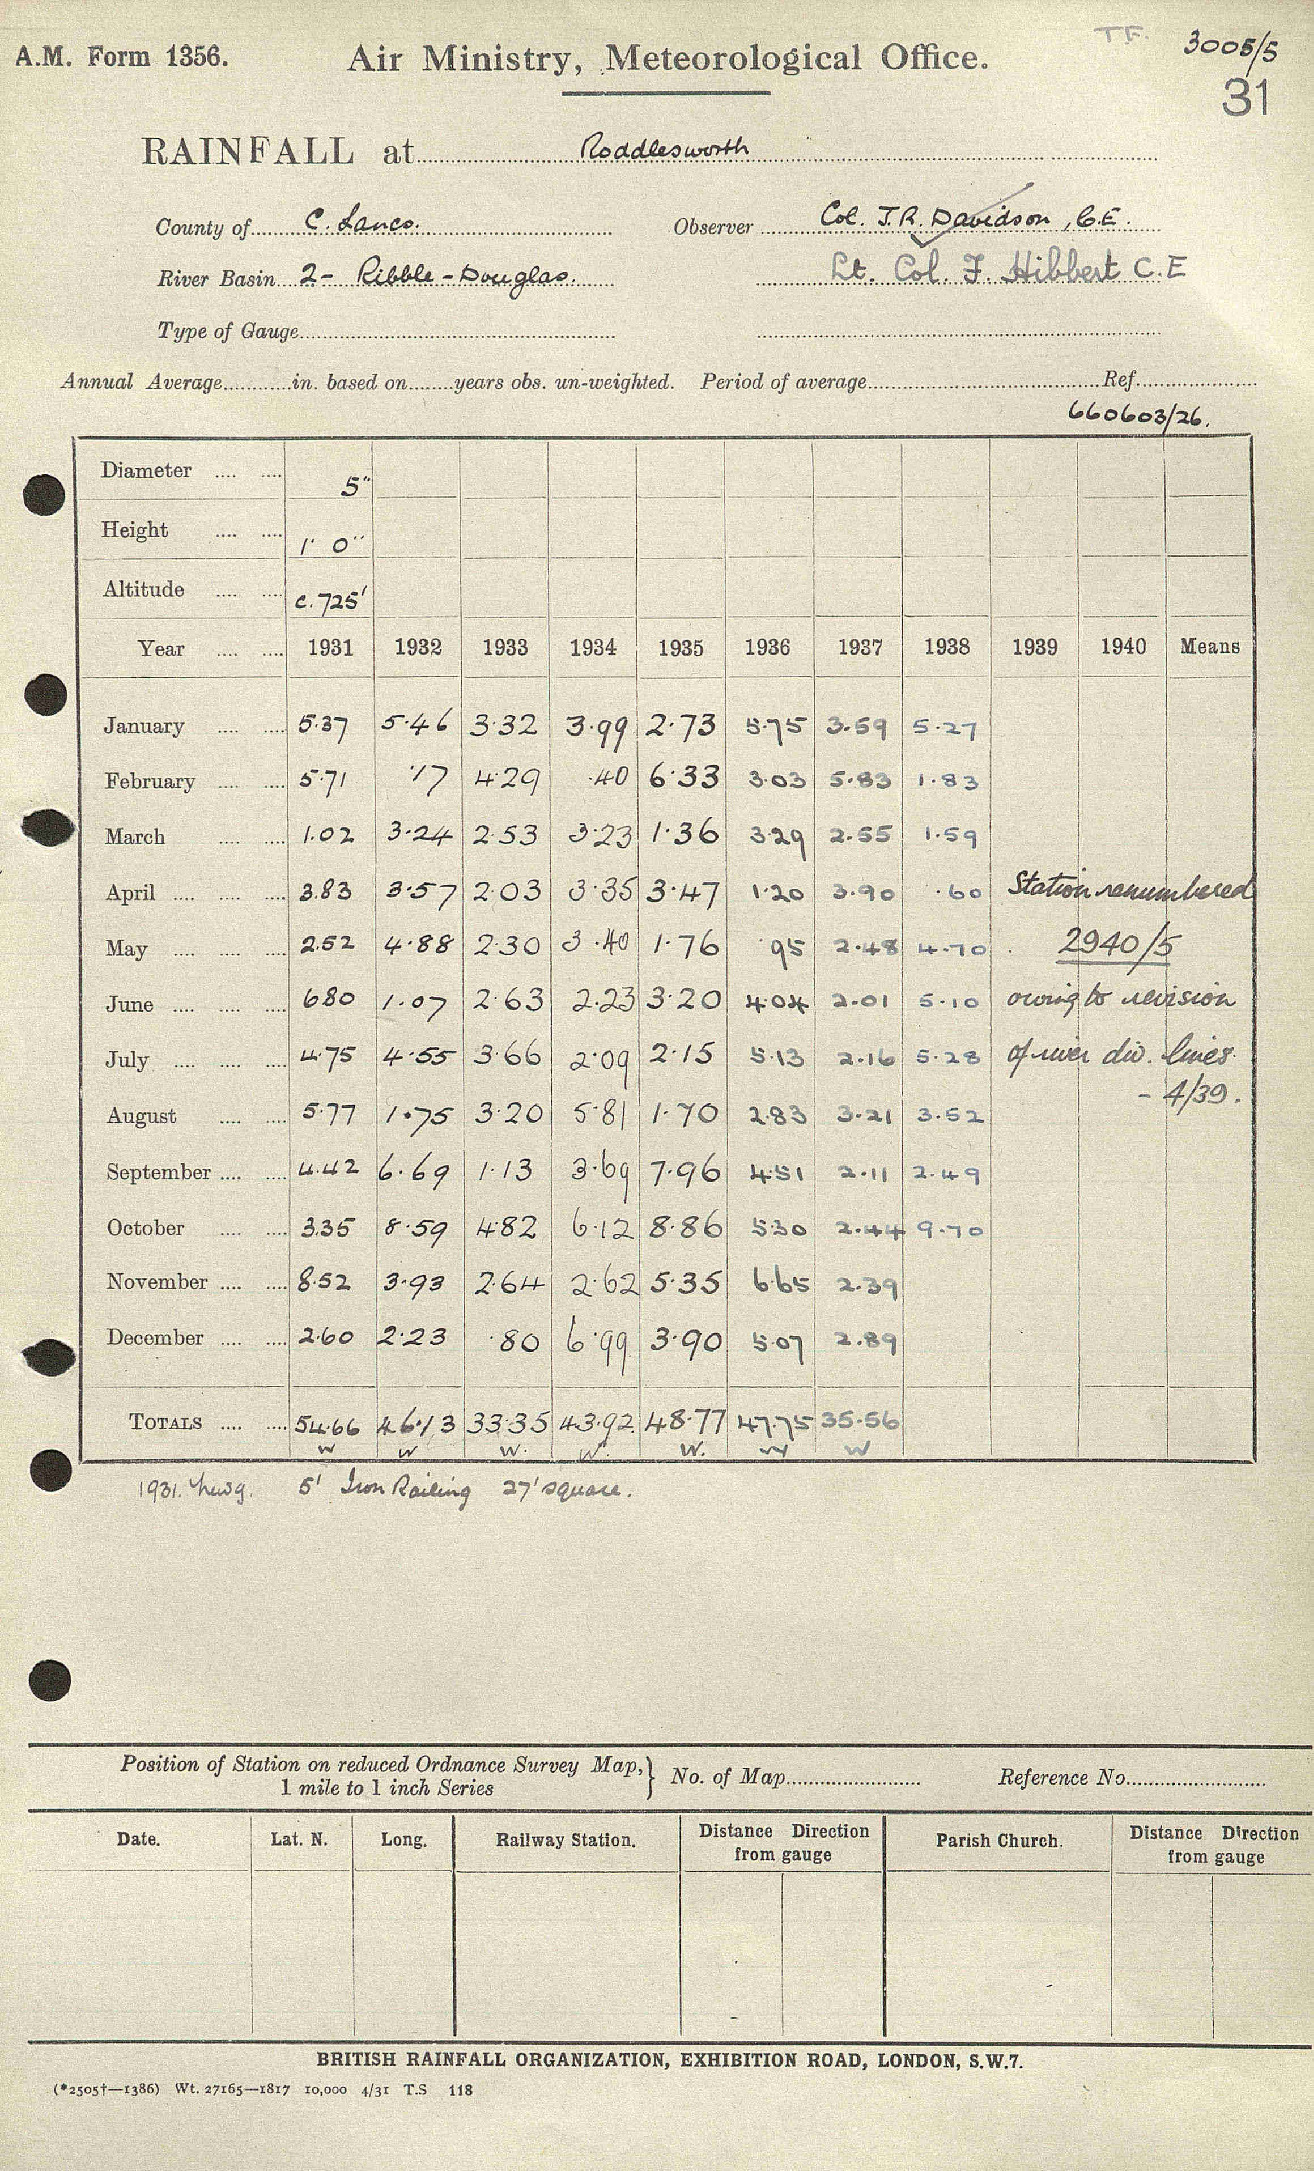 T.F.
3005/5
A.M. Form 1356. Air Ministry, Meteorological Office.
31
RAINFALL at Roddlesworth
County of C. Lancs. Observer Col. J.R. Davidson, C.E.
River Basin 2- Ribble-Douglas. Lt. Col. F. Hibbert C.E
Type of Gauge
Annual Average in. based on years obs. un-weighted. Period of average Ref.
660603/26.
Diameter 5"
Height 1' 0"
Altitude c.725'
Year 1931 1932 1933 1934 1935 1936 1937 1938 1939 1940 Means
January 5.37 5.46 3.32 3.99 2.73 5.75 3.59 5.27
February 5.71 .17 4.29 .40 6.33 3.03 5.83 1.83
March 1.02 3.24 2.53 3.23 1.36 3.29 2.55 1.59
April 3.83 3.57 2.03 3.35 3.47 1.20 3.90 .60 Station renumbered
May 2.52 4.88 2.30 3.40 1.76 .95 2.48 4.70 2940/5
June 6.80 1.07 2.63 2.23 3.20 4.04 2.01 5.10 owing to revision
July 4.75 4.55 3.66 2.09 2.15 5.13 2.16 5.28 of river div. lines
- 4/39.
August 5.77 1.75 3.20 5.81 1.70 2.83 3.21 3.52
September 4.42 6.69 1.13 3.69 7.96 4.51 2.11 2.49
October 3.35 8.59 4.82 6.12 8.86 5.30 2.44 9.70
November 8.52 3.93 2.64 2.62 5.35 6.65 2.39
December 2.60 2.23 .80 6.99 3.90 5.07 2.89
TOTALS 54.66 46.13 33.35 43.92 48.77 47.75 35.56
W W W. W. W. W W
1931. 5' Iron Railing 27' square.
Position of Station on reduced Ordnance Survey Map, } No. of Map Reference No.
1 mile to 1 inch Series
Date. Lat. N. Long. Railway Station. Distance Direction from gauge Parish Church. Distance Direction from gauge
BRITISH RAINFALL ORGANIZATION, EXHIBITION ROAD, LONDON, S.W.7.
(*2505†—1386) Wt. 27165—1817 10,000 4/31 T.S 118